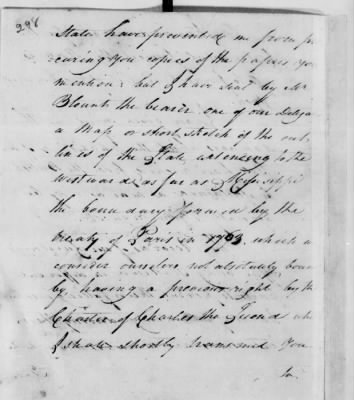 298
State have prevented me from pro
curing you copies of the papers you
mention; but I have sent by Mr
Blount the bearer one of our Delega
a Map or short sketch of the out
lines of the State, extending to the
westward as far as Mississippi
the boundary formed by the
treaty of Paris in 1763. which we
consider ourselves not absolutely boun
by having a previous right by the
Charter of Charles the Second wh
I shall shortly transmit you
to